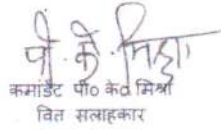 पी. के. मिश्रा
कमांडेंट पी० के० मिश्रा
वित सलाहकार